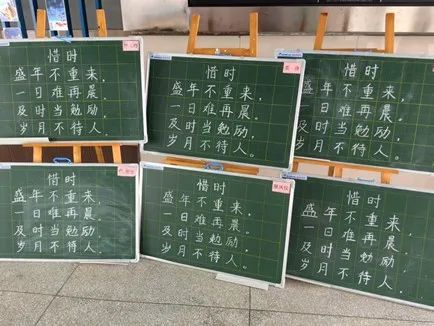 惜时
盛年不重来，
一日难再晨。
及时当勉励，
岁月不待人。
惜时
盛年不重来，
一日难再晨。
及时当勉励，
岁月不待人。
惜时
盛年不重来，
一日难再晨。
及时当勉励，
岁月不待人。
惜时
盛年不重来，
一日难再晨。
及时当勉励
岁月不待人。
惜时
盛年不重来，
一日难再晨。
及时当勉励，
岁月不待人。
惜时
盛年不重来，
一日难再晨。
及时当勉励，
岁月不待人。